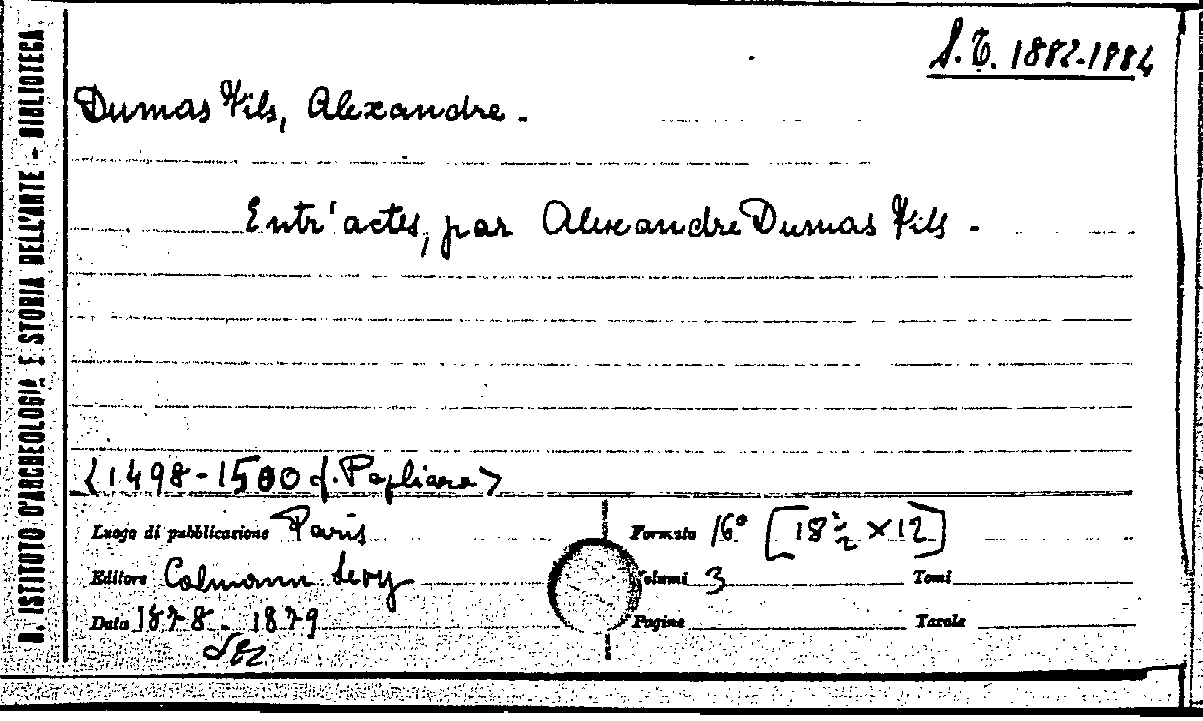 R. ISTITUTO D'ARCHEOLOGIA E STORIA DELL'ARTE - BIBLIOTECA
S.T. 1882-1884
Dumas Fils, Alexandre.
Entr'actes, par Alexandre Dumas Fils.
<1498-1500 f. Pagliara>
Luogo di pubblicazione Paris
Formato 16° [18 1/2 x 12]
Editore Calmann Levy
Volumi 3
Tomi
Data 1878-1879
Pagine
Tavole